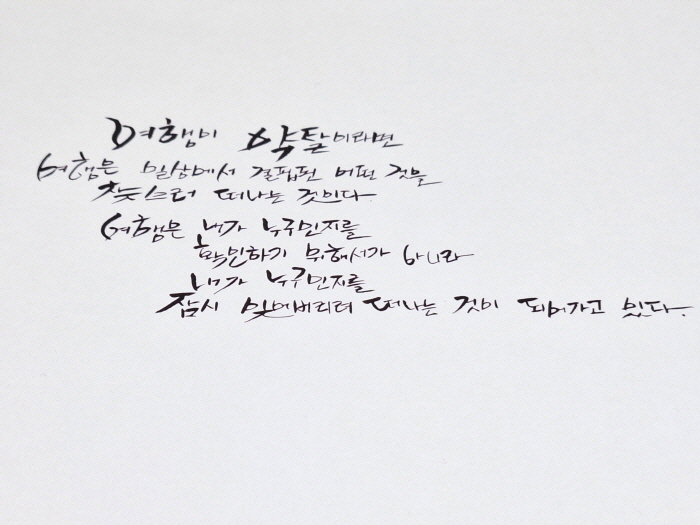 여행이 약탈이라면
여행은 일상에서 결핍된 어떤 것을
찾으러 떠나는 것이다
여행은 내가 누구인지를
확인하기 위해서가 아니라
내가 누구인지를
잠시 잊어버리려 떠나는 것이 되어가고 있다.